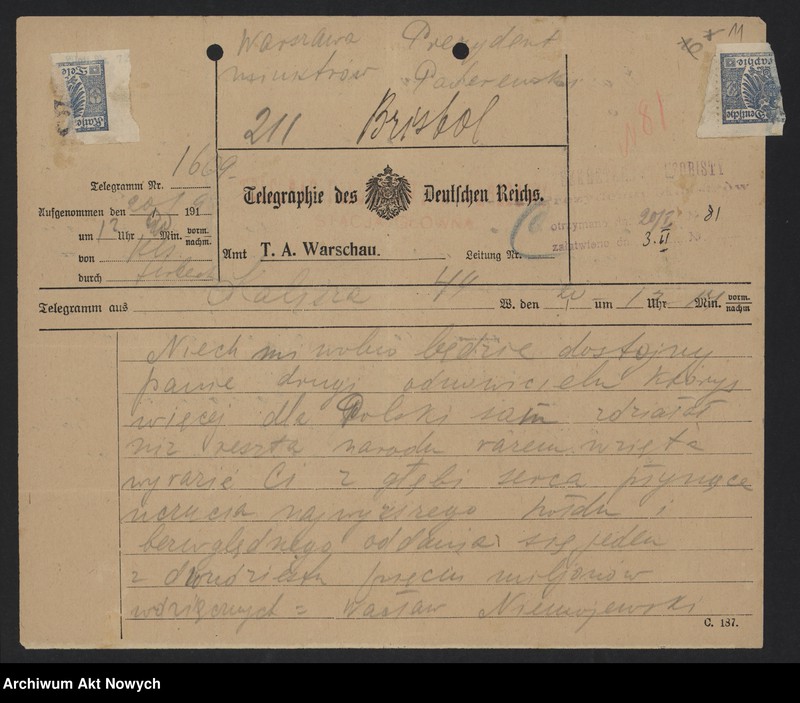 Warszawa Prezydent
ministrów Paderewski
211 Bristol
11
N 81
1669
Telegramm Nr.
Aufgenommen den 20/1 191
um 12 Uhr Min. vorm. nachm.
von Kls
durch
Telegraphie des Deutschen Reichs.
Amt T. A. Warschau.
Leitung Nr.
otrzymano dn. 20/I № 81
załatwiono dn. 3.II Nr.
Telegramm aus Kalisza 44 W. den 20 um 12 Uhr. Min. vorm. nachm
Niech mi wolno będzie dostojny
panie drugi odnowicielu któryś
więcej dla Polski sam zdziałał
niż reszta narodu razem wzięta
wyrazić Ci z głębi serca płynące
uczucia najwyższego hołdu i
bezwzględnego oddania się jeden
z dwudziestu pięciu miljonów
wdzięcznych = Wacław Niemojewski
C. 187.
Deutsche
Archiwum Akt Nowych